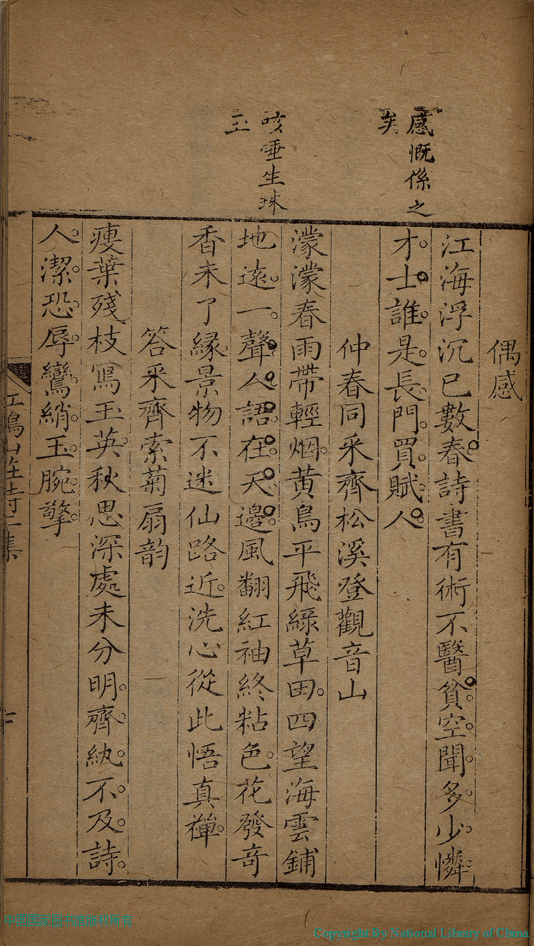 感慨係之
矣
咳唾生珠
玉
偶感
江海浮沉已數春詩書有術不醫貧空聞多少憐
才士誰是長門買賦人
仲春同采齊松溪登觀音山
濛濛春雨帶輕烟黃鳥平飛綠草田四望海雲鋪
地遠一聲人語在天邊風翻紅袖終粘色花發奇
香未了緣景物不迷仙路近洗心從此悟真禪
答采齊索菊扇韵
瘦葉殘枝寫玉英秋思深處未分明齊紈不及詩
人潔恐辱鸞綃玉腕擎
山
詩
集
Copyright By National Library of China